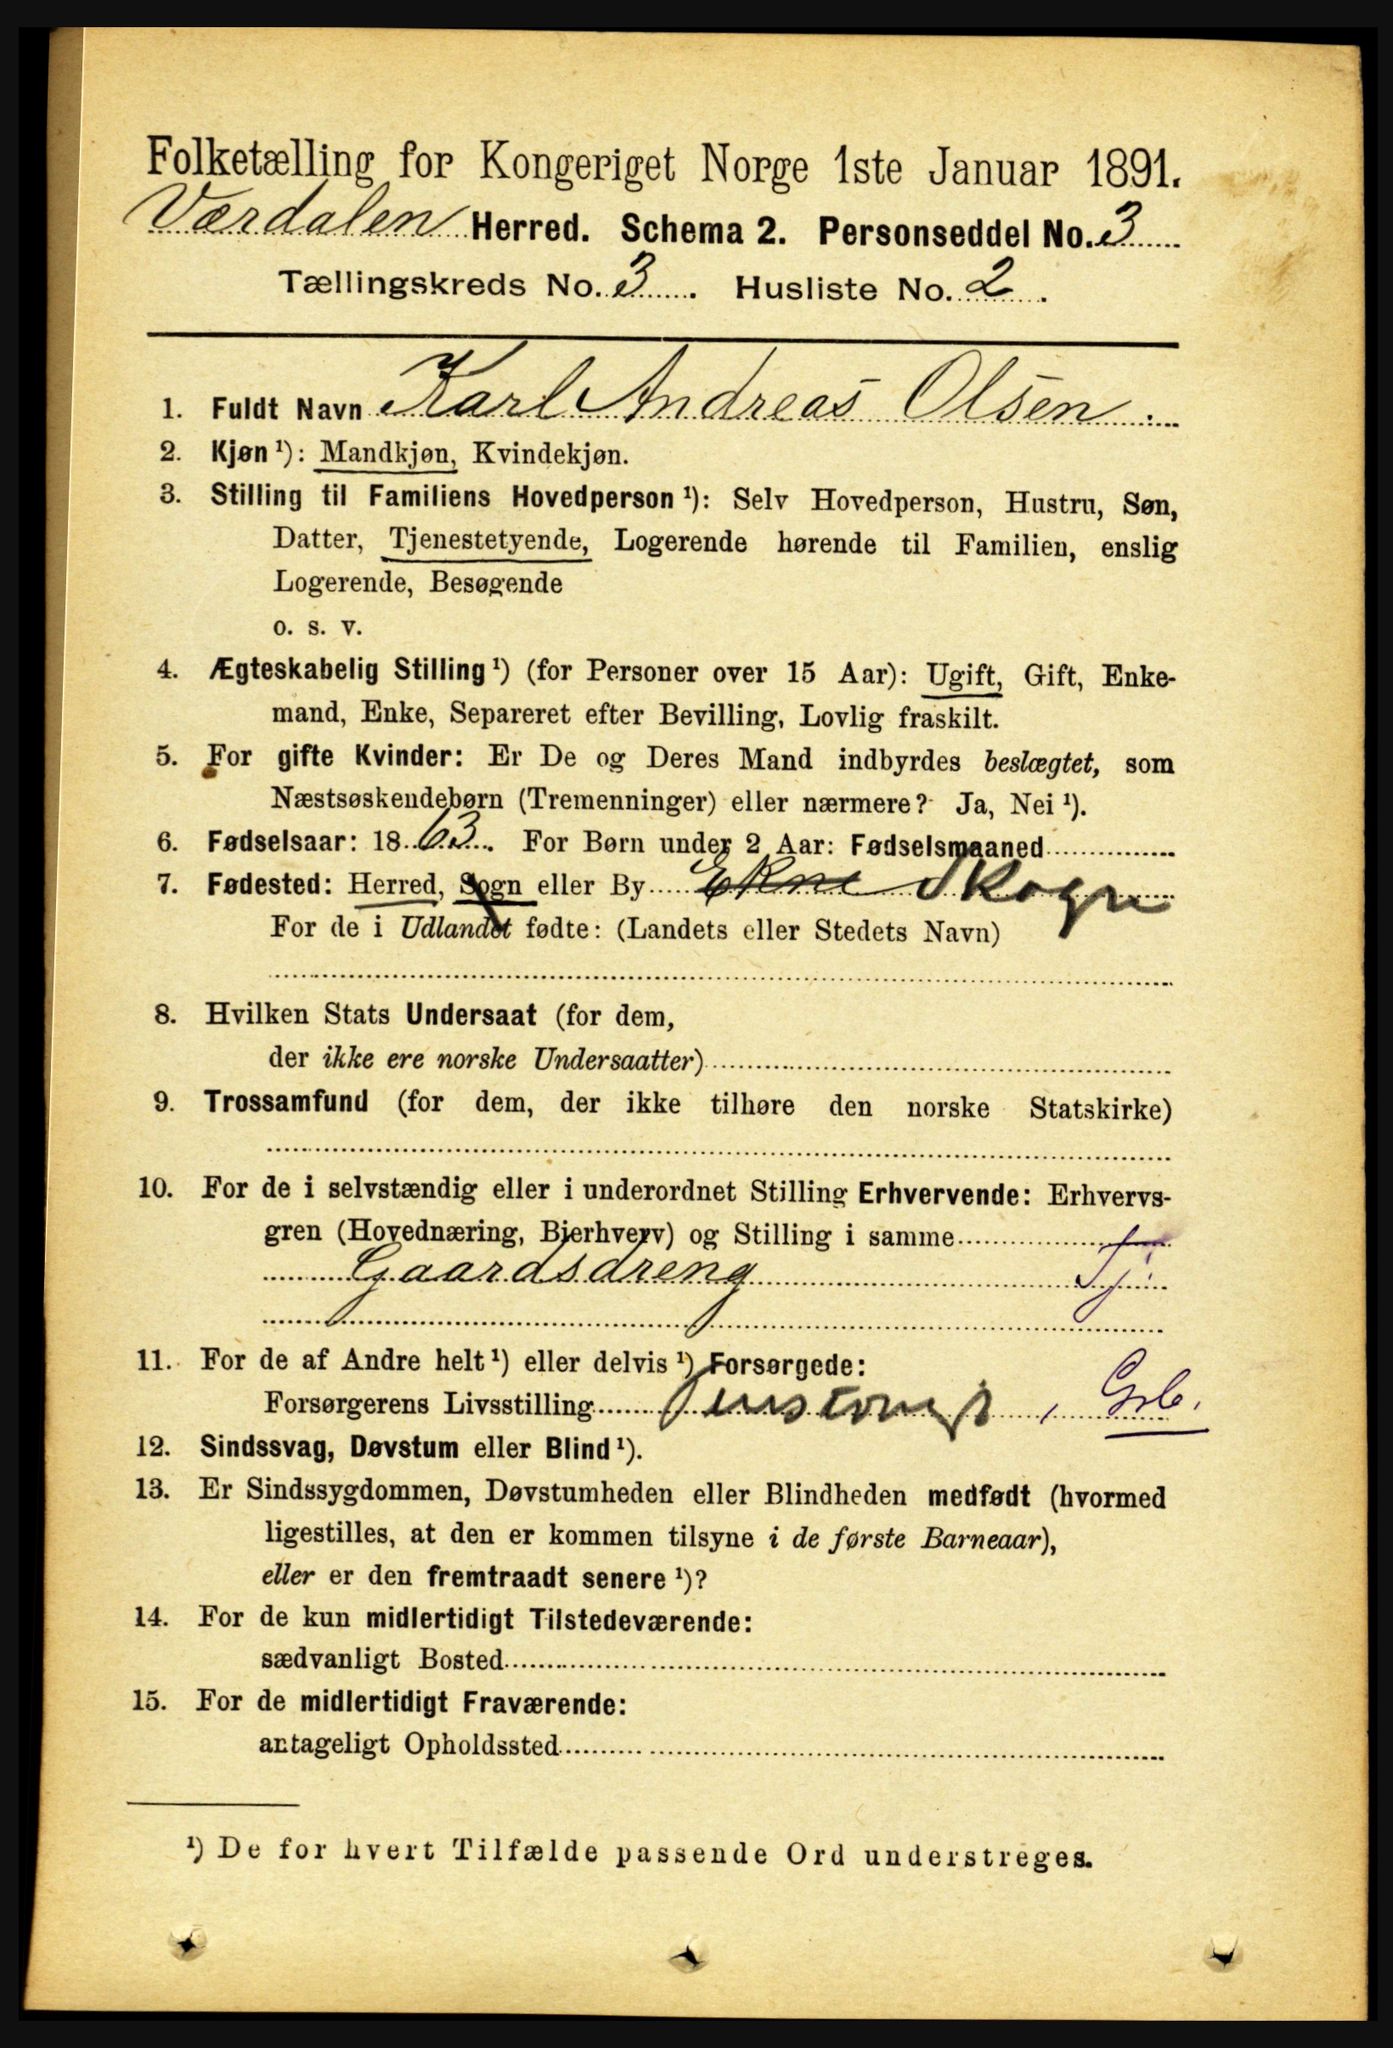 Folketælling for Kongeriget Norge 1ste Januar 1891.
Værdalen Herred. Schema 2. Personseddel No. 3
Tællingskreds No. 3. Husliste No. 2.
1. Fuldt Navn Karl Andreas Olsen.
2. Kjøn ¹): Mandkjøn, Kvindekjøn.
3. Stilling til Familiens Hovedperson ¹): Selv Hovedperson, Hustru, Søn,
Datter, Tjenestetyende, Logerende hørende til Familien, enslig
Logerende, Besøgende
o. s. v.
4. Ægteskabelig Stilling ¹) (for Personer over 15 Aar): Ugift, Gift, Enke-
mand, Enke, Separeret efter Bevilling, Lovlig fraskilt.
5. For gifte Kvinder: Er De og Deres Mand indbyrdes beslægtet, som
Næstsøskendebørn (Tremenninger) eller nærmere? Ja, Nei ¹).
6. Fødselsaar: 1863. For Børn under 2 Aar: Fødselsmaaned
7. Fødested: Herred, Sogn eller By Ekne Skogn
For de i Udlandet fødte: (Landets eller Stedets Navn)
8. Hvilken Stats Undersaat (for dem,
der ikke ere norske Undersaatter)
9. Trossamfund (for dem, der ikke tilhøre den norske Statskirke)
10. For de i selvstændig eller i underordnet Stilling Erhvervende: Erhvervs-
gren (Hovednæring, Bierhverv) og Stilling i samme
Gaardsdreng Tj.
11. For de af Andre helt ¹) eller delvis ¹) Forsørgede:
Forsørgerens Livsstilling , Grb.
12. Sindssvag, Døvstum eller Blind ¹).
13. Er Sindssygdommen, Døvstumheden eller Blindheden medfødt (hvormed
ligestilles, at den er kommen tilsyne i de første Barneaar),
eller er den fremtraadt senere ¹)?
14. For de kun midlertidigt Tilstedeværende:
sædvanligt Bosted
15. For de midlertidigt Fraværende:
antageligt Opholdssted
¹) De for hvert Tilfælde passende Ord understreges.